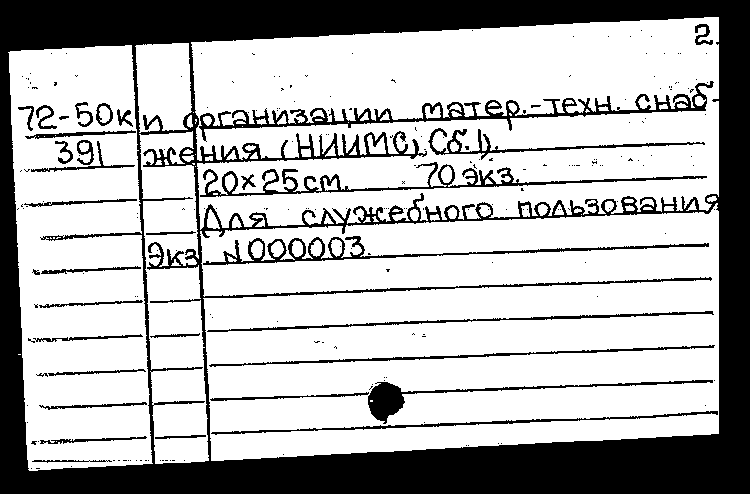 2.
72-50к и организации матер.-техн. снаб-
391 жения. (НИИМС, Сб. 1).
20×25см. 70 экз.
Для служебного пользования
Экз. №000003.